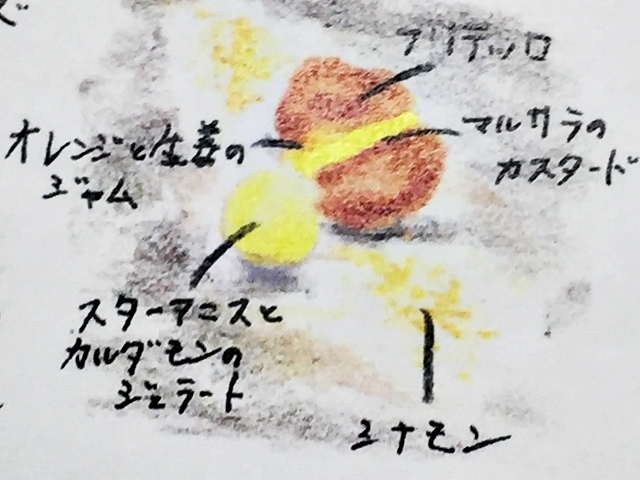 フリテッロ
マルサラの
カスタード
オレンジと生姜の
ジャム
スターアニスと
カルダモンの
ジェラート
シナモン